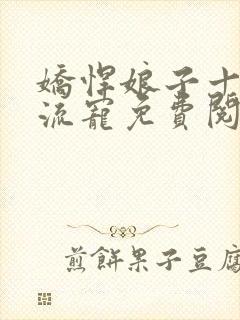 嬌悍娘子十
流寵免費閱
煎餅果子豆腐